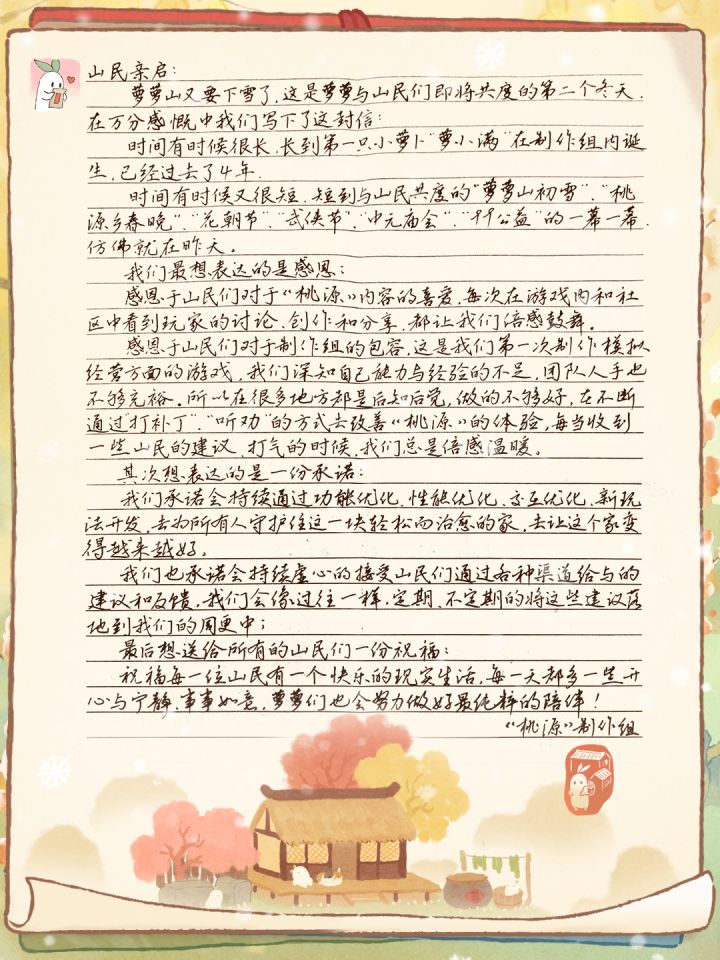 山民亲启:
萝萝山又要下雪了,这是萝萝与山民们即将共度的第二个冬天,
在万分感慨中我们写下了这封信:
时间有时候很长,长到第一只小萝卜"萝小满"在制作组内诞
生,已经过去了4年.
时间有时候又很短,短到与山民共度的"萝萝山初雪"、"桃
源乡春晚"、"花朝节"、"武侠节"、"中元庙会"、"公益"的一幕一幕,
仿佛就在昨天。
我们最想表达的是感恩:
感恩于山民们对于《桃源》内容的喜爱,每次在游戏内和社
区中看到玩家的讨论、创作和分享,都让我们倍感鼓舞。
感恩于山民们对于制作组的包容,这是我们第一次制作模拟
经营方面的游戏,我们深知自己能力与经验的不足,团队人手也
不够充裕。所以在很多地方都是后知后觉,做的不够好,在不断
通过"打补丁"、"听劝"的方式去改善《桃源》的体验,每当收到
一些山民的建议、打气的时候,我们总是倍感温暖。
其次想表达的是一份承诺:
我们承诺会持续通过功能优化、性能优化、交互优化、新玩
法开发,去为所有人守护住这一块轻松而治愈的家,去让这个家变
得越来越好。
我们也承诺会持续虚心的接受山民们通过各种渠道给与的
建议和反馈,我们会像过往一样,定期、不定期的将这些建议落
地到我们的周更中;
最后想送给所有的山民们一份祝福:
祝福每一位山民有一个快乐的现实生活,每一天都多一些开
心与宁静,事事如意,萝萝们也会努力做好最纯粹的陪伴!
《桃源》制作组